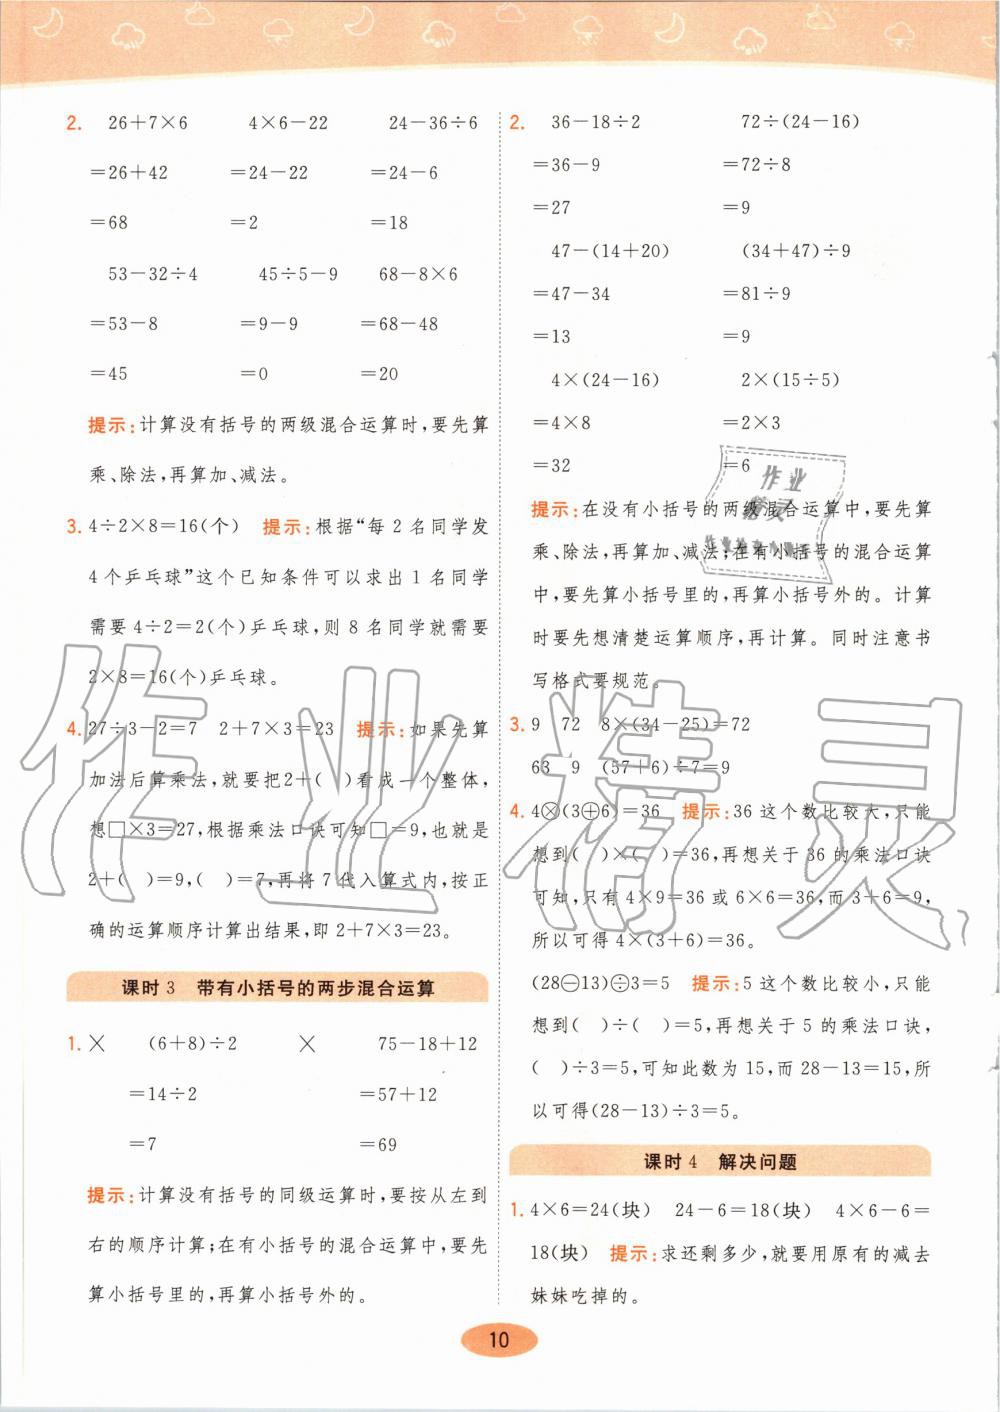 2. 26+7×6 4×6-22 24-36÷6
=26+42 =24-22 =24-6
=68 =2 =18
53-32÷4 45÷5-9 68-8×6
=53-8 =9-9 =68-48
=45 =0 =20
提示:计算没有括号的两级混合运算时,要先算
乘、除法,再算加、减法。
3. 4÷2×8=16(个) 提示:根据“每2名同学发
4个乒乓球”这个已知条件可以求出1名同学
需要4÷2=2(个)乒乓球,则8名同学就需要
2×8=16(个)乒乓球。
4. 27÷3-2=7 2+7×3=23 提示:如果先算
加法后算乘法,就要把2+( )看成一个整体,
想□×3=27,根据乘法口诀可知□=9,也就是
2+( )=9,( )=7,再将7代入算式内,按正
确的运算顺序计算出结果,即2+7×3=23。
课时3 带有小括号的两步混合运算
1. × (6+8)÷2 × 75-18+12
=14÷2 =57+12
=7 =69
提示:计算没有括号的同级运算时,要按从左到
右的顺序计算;在有小括号的混合运算中,要先
算小括号里的,再算小括号外的。
2. 36-18÷2 72÷(24-16)
=36-9 =72÷8
=27 =9
47-(14+20) (34+47)÷9
=47-34 =81÷9
=13 =9
4×(24-16) 2×(15÷5)
=4×8 =2×3
=32 =6
提示:在没有小括号的两级混合运算中,要先算
乘、除法,再算加、减法;在有小括号的混合运算
中,要先算小括号里的,再算小括号外的。计算
时要先想清楚运算顺序,再计算。同时注意书
写格式要规范。
3. 9 72 8×(34-25)=72
63 9 (57+6)÷7=9
4. 4⊗(3⊕6)=36 提示:36这个数比较大,只能
想到( )×( )=36,再想关于36的乘法口诀
可知,只有4×9=36或6×6=36,而3+6=9,
所以可得4×(3+6)=36。
(28⊖13)⨸3=5 提示:5这个数比较小,只能
想到( )÷( )=5,再想关于5的乘法口诀,
( )÷3=5,可知此数为15,而28-13=15,所
以可得(28-13)÷3=5。
课时4 解决问题
1. 4×6=24(块) 24-6=18(块) 4×6-6=
18(块) 提示:求还剩多少,就要用原有的减去
妹妹吃掉的。
10
作业精灵
作业
精灵